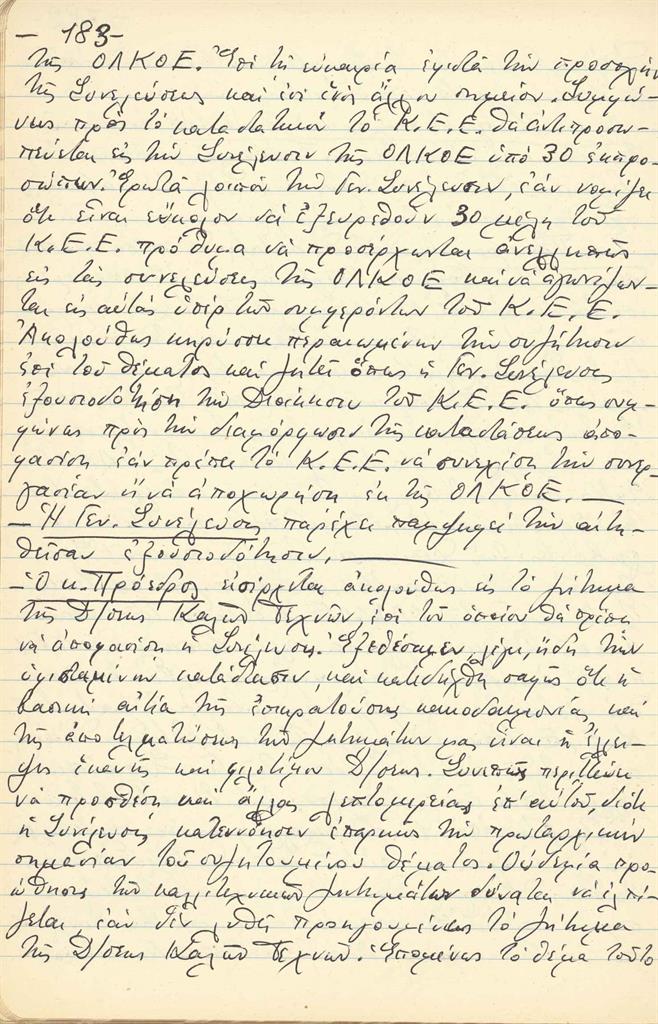 - 183 -
τῆς ΟΛΚΟΕ. Ἐπὶ τῇ εὐκαιρίᾳ ἐφιστᾷ τὴν προσοχὴν
τῆς Συνελεύσεως καὶ ἐπὶ ἑνὸς ἄλλου σημείου. Συμφώ-
νως πρὸς τὸ καταστατικὸν τὸ Κ.Ε.Ε. θὰ ἀντιπροσω-
πεύεται εἰς τὴν Συνέλευσιν τῆς ΟΛΚΟΕ ὑπὸ 30 ἐκπρο-
σώπων. Ἐρωτᾷ λοιπὸν τὴν Γεν. Συνέλευσιν, ἐὰν νομίζῃ
ὅτι εἶναι εὔκολον νὰ ἐξευρεθοῦν 30 μέλη τοῦ
Κ.Ε.Ε. πρόθυμα νὰ προσέρχωνται ἀνελλιπῶς
εἰς τὰς συνελεύσεις τῆς ΟΛΚΟΕ καὶ νὰ ἀγωνίζων-
ται εἰς αὐτὰς ὑπὲρ τῶν συμφερόντων τοῦ Κ.Ε.Ε.
Ἀκολούθως κηρύσσει περαιωμένην τὴν συζήτησιν
ἐπὶ τοῦ θέματος καὶ ζητεῖ ὅπως ἡ Γεν. Συνέλευσις
ἐξουσιοδοτήσῃ τὴν Διοίκησιν τοῦ Κ.Ε.Ε. ὅπως συμ-
φώνως πρὸς τὴν διαμόρφωσιν τῆς καταστάσεως ἀπο-
φασίσῃ ἐὰν πρέπει τὸ Κ.Ε.Ε. νὰ συνεχίσῃ τὴν συνερ-
γασίαν ἢ νὰ ἀποχωρήσῃ ἐκ τῆς ΟΛΚΟΕ. —
- Ἡ Γεν. Συνέλευσις παρέχει παμψηφεὶ τὴν αἰτη-
θεῖσαν ἐξουσιοδότησιν. —
- Ὁ κ. Πρόεδρος εἰσέρχεται ἀκολούθως εἰς τὸ ζήτημα
τῆς Δ/σεως Καλῶν Τεχνῶν, ἐπὶ τοῦ ὁποίου θὰ πρέπῃ
νὰ ἀποφασίσῃ ἡ Συνέλευσις. Ἐξεθέσαμεν, λέγει, ἤδη τὴν
ὑφισταμένην κατάστασιν, καὶ κατεδείχθη σαφῶς ὅτι ἡ
βασικὴ αἰτία τῆς ἐπικρατούσης κακοδαιμονίας καὶ
τῆς ἀποτελματώσεως τῶν ζητημάτων μας εἶναι ἡ ἔλλει-
ψις ἱκανῆς καὶ φιλοτίμου Δ/σεως. Συνεπῶς περιττεύει
νὰ προσθέσῃ καὶ ἄλλας λεπτομερείας ἐπ' αὐτοῦ, διότι
ἡ Συνέλευσις κατενόησεν ἐπαρκῶς τὴν πρωταρχικὴν
σημασίαν τοῦ συζητουμένου θέματος. Οὐδεμία προ-
ώθησις τῶν καλλιτεχνικῶν ζητημάτων δύναται νὰ ἐλπί-
ζεται, ἐὰν δὲν λυθῇ προηγουμένως τὸ ζήτημα
τῆς Δ/σεως Καλῶν Τεχνῶν. Ἑπομένως τὸ θέμα τοῦτο